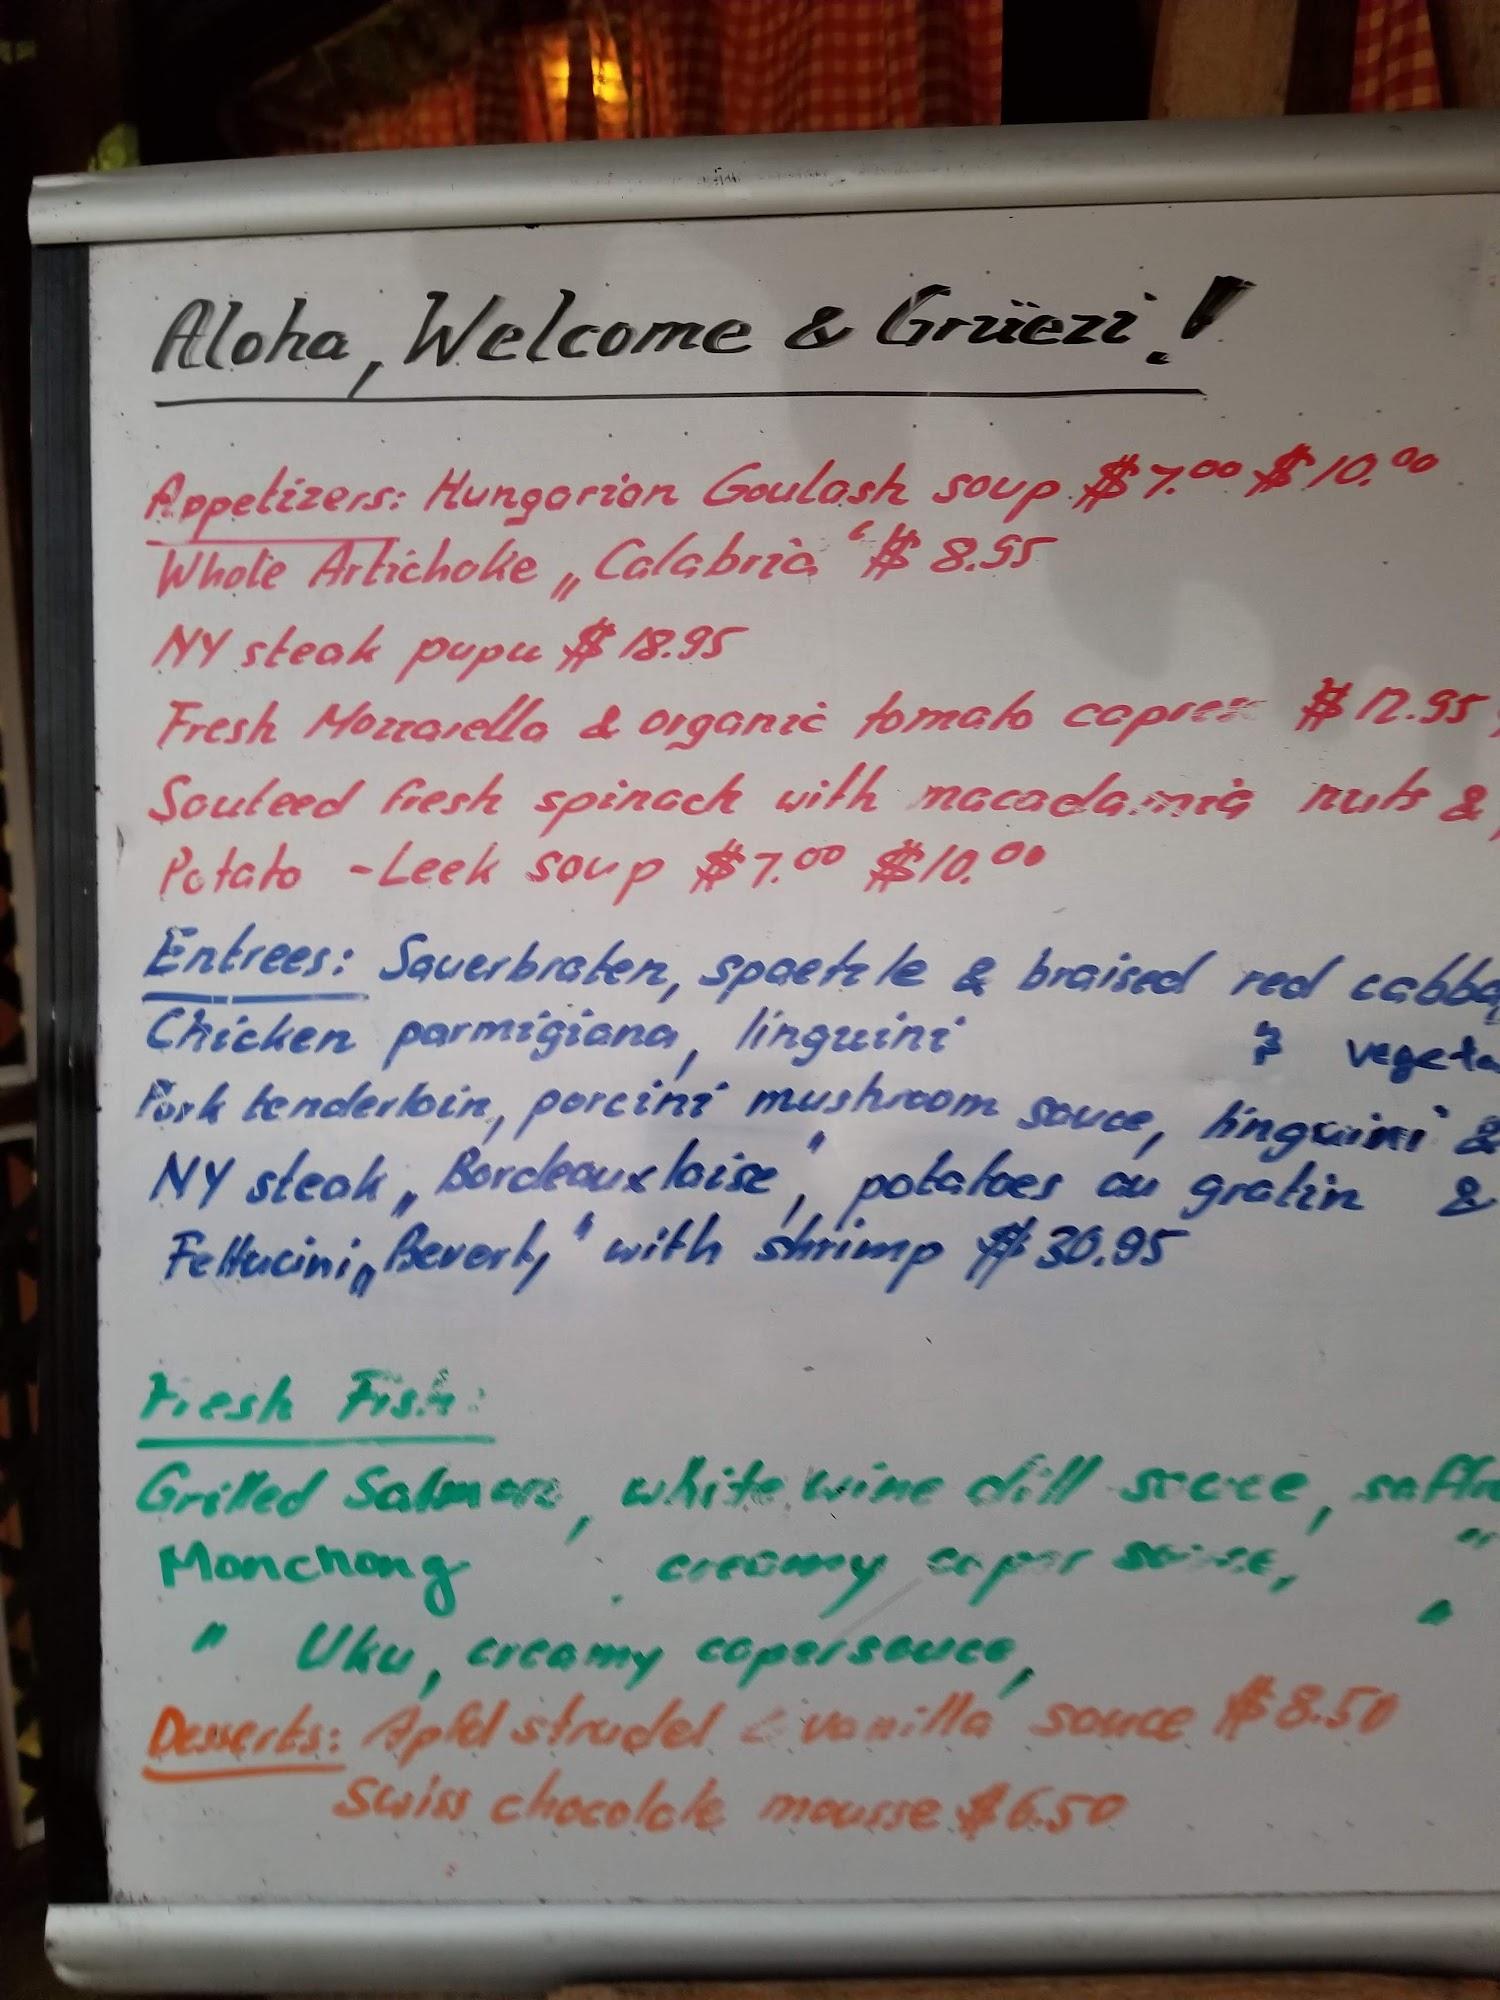 Aloha, Welcome & Grüezi!
Appetizers: Hungarian Goulash soup $7.00 $10.00
Whole Artichoke „Calabria“ $8.95
NY steak pupu $18.95
Fresh Mozzarella & organic tomato caprese $12.95
Sauteed fresh spinach with macadamia nuts &
Potato - Leek soup $7.00 $10.00
Entrees: Sauerbraten, spaetzle & braised red cabba
Chicken parmigiana, linguini & vegeta
Pork tenderloin, porcini mushroom sauce, linguini &
NY steak „Bordeauxlaise“, potatoes au gratin &
Fettucini „ “ with shrimp $30.95
Fresh Fish:
Grilled Salmon, white wine dill sauce, saffr
Monchong , creamy caper sauce, "
" Uku, creamy caper sauce, "
Desserts: Apfelstrudel & vanilla sauce $8.50
Swiss chocolate mousse $6.50